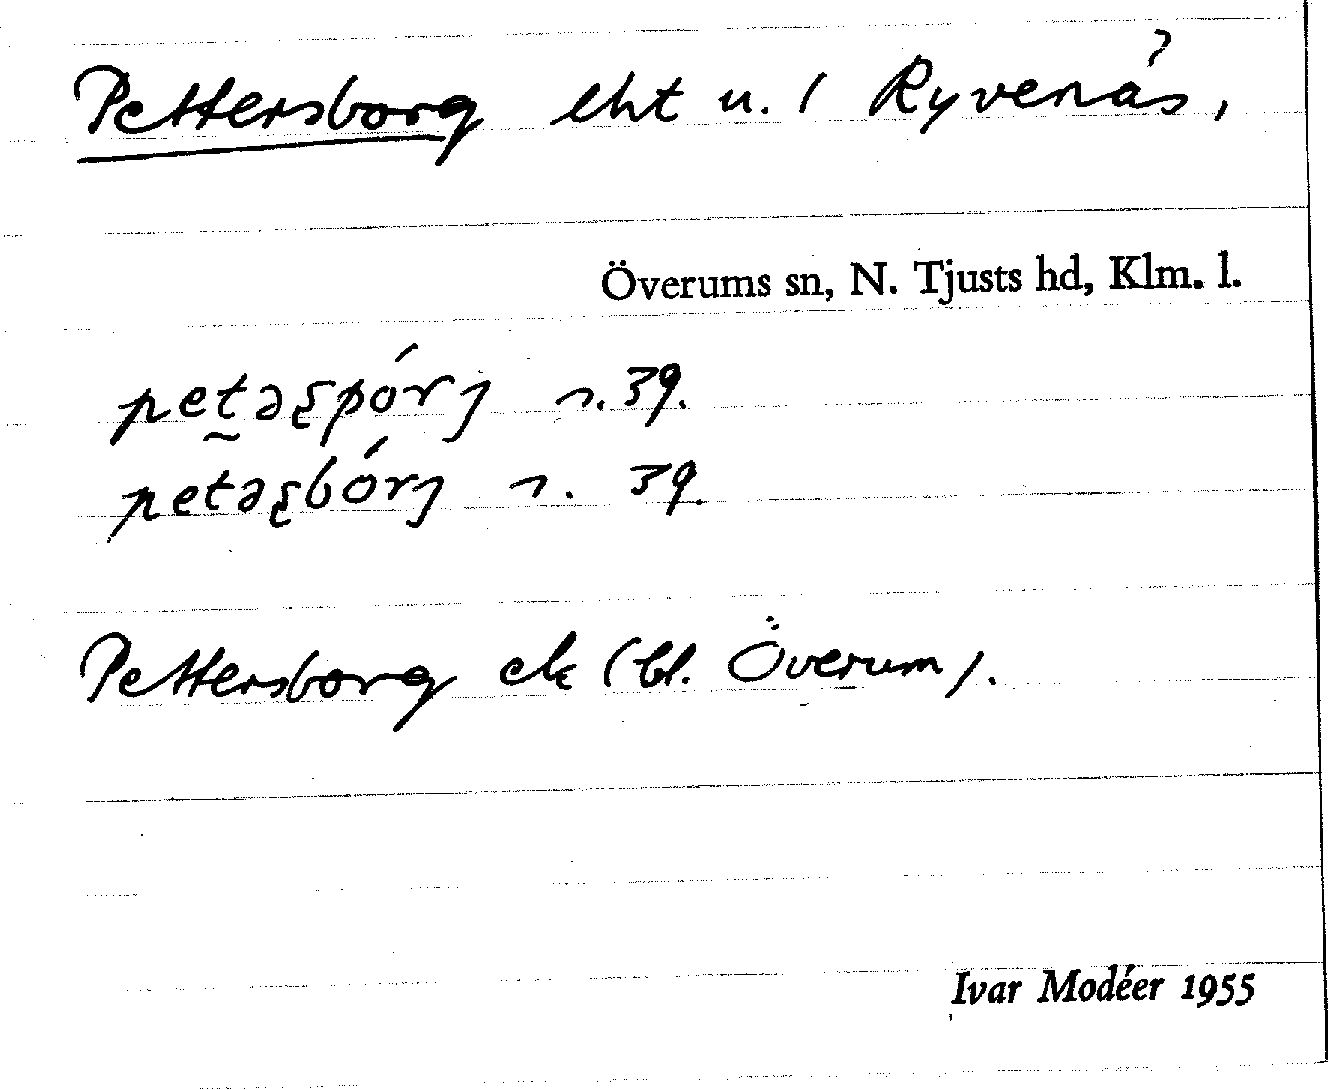 Pettersborg lht u. / Ryvenäs,
Överums sn, N. Tjusts hd, Klm. l.
petəʂpórj s. 39.
petəʂbórj s. 39.
Pettersborg ek (bl. Överum).
Ivar Modéer 1955